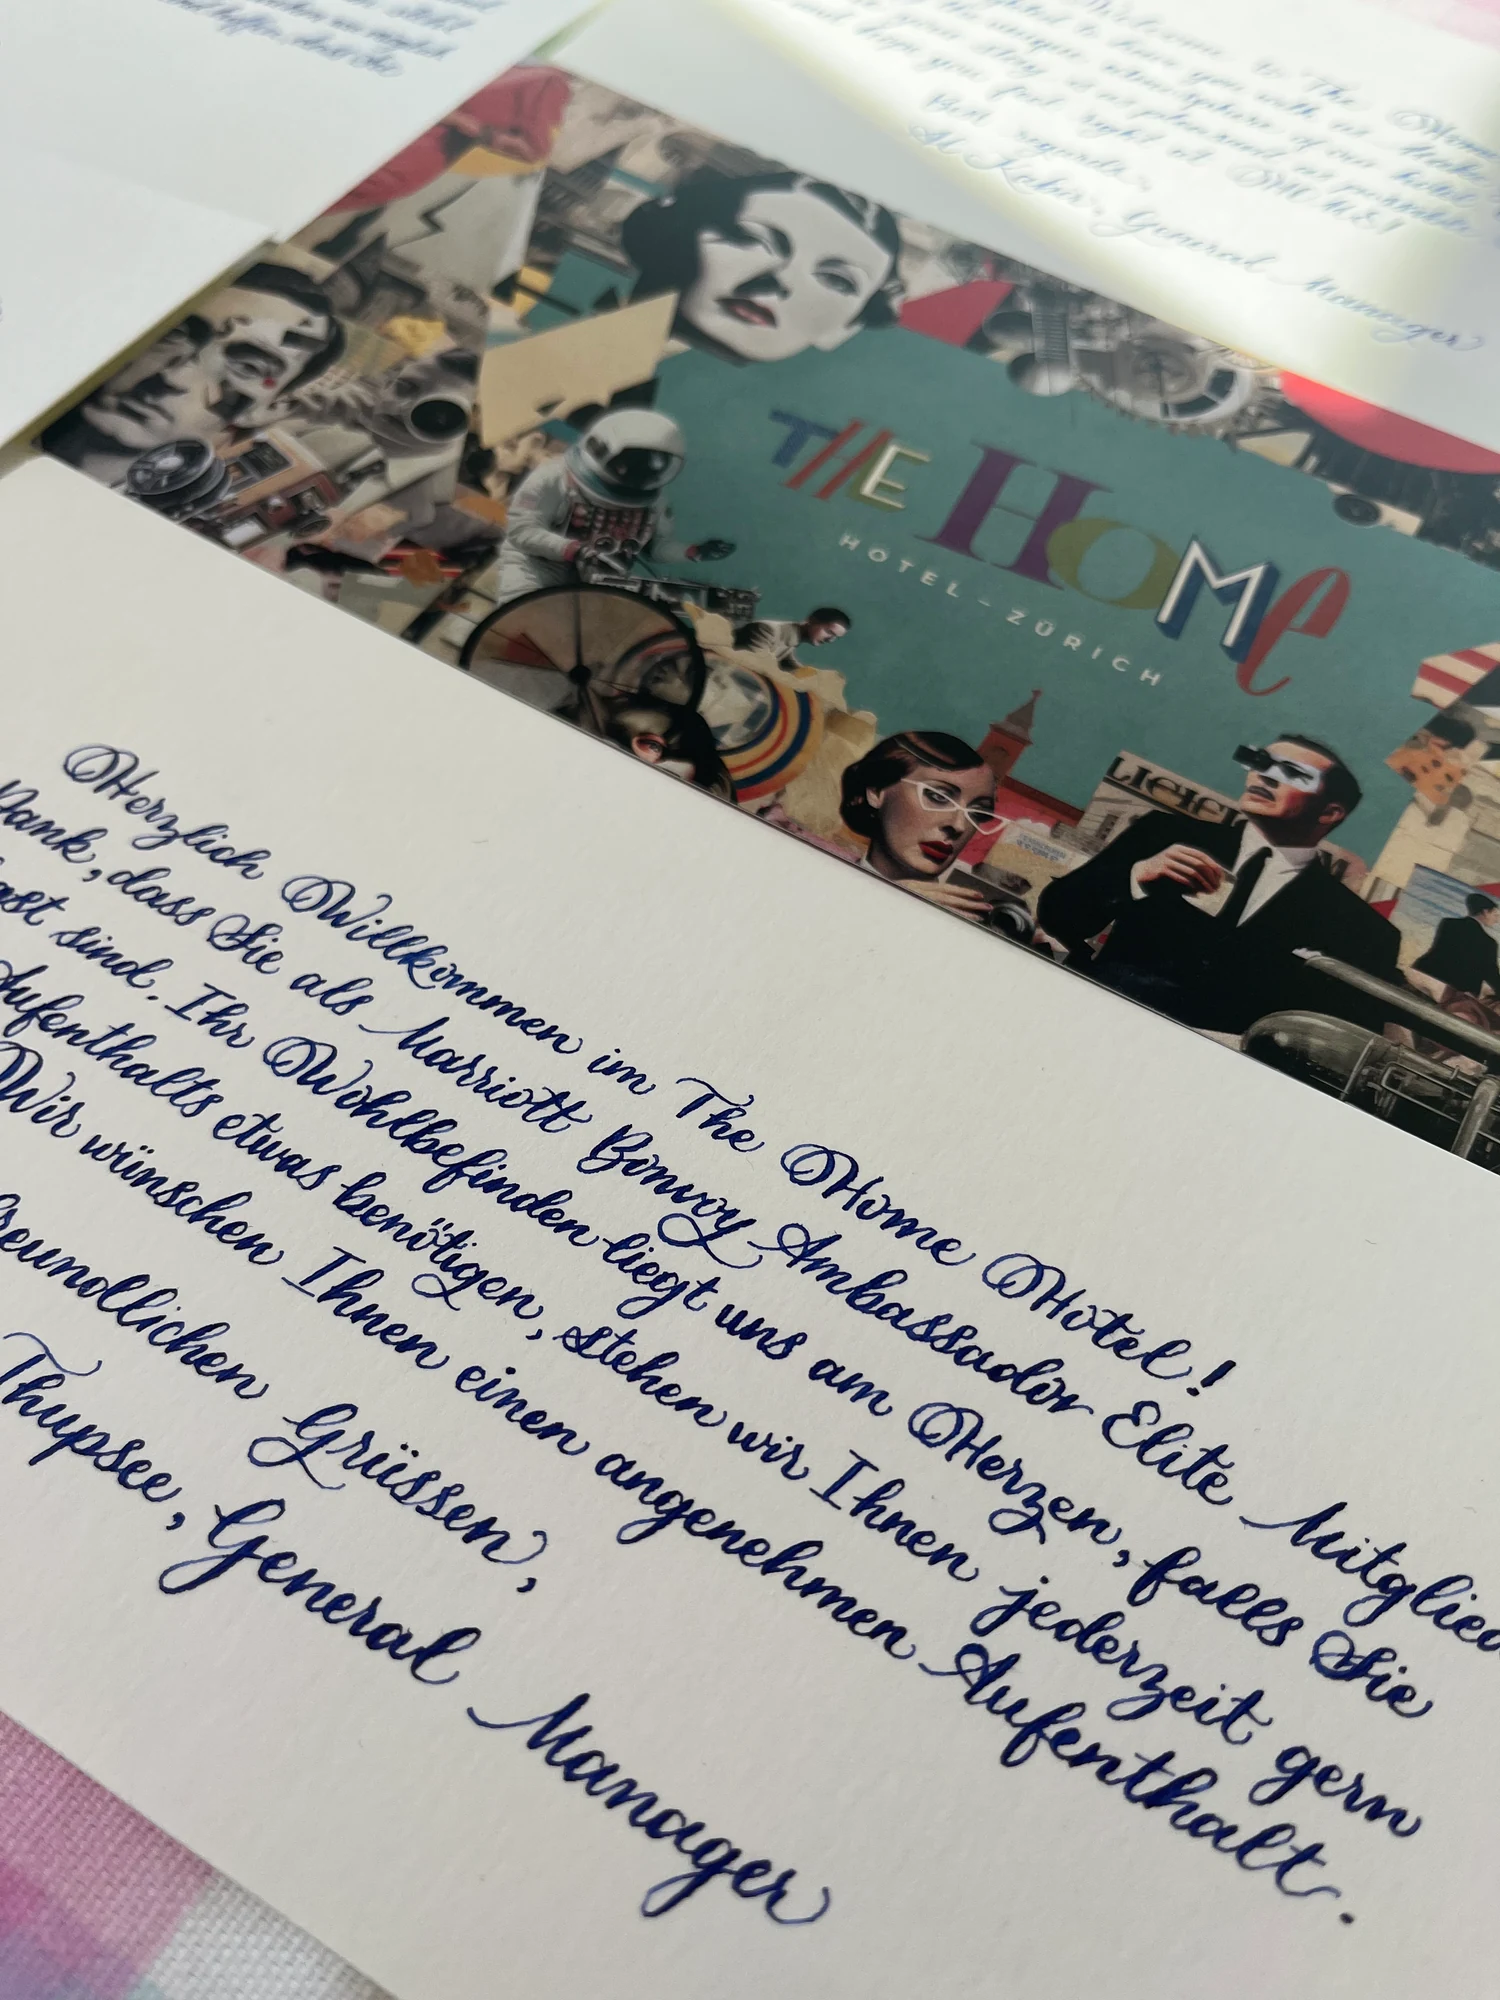 hoffen, dass Sie
Welcome to The Home
to have you with us.
the unique atmosphere of our hotel
your stay as pleasant as
and hope you feel right at HOME!
Best regards,
General Manager
THE HOME
HOTEL - ZÜRICH
Herzlich Willkommen im The Home Hotel!
Dank, dass Sie als Marriott Bonvoy Ambassador Elite Mitglied
ast sind. Ihr Wohlbefinden liegt uns am Herzen, falls Sie
Aufenthalts etwas benötigen, stehen wir Ihnen jederzeit gern
Wir wünschen Ihnen einen angenehmen Aufenthalt.
reundlichen Grüssen,
Thupsee, General Manager